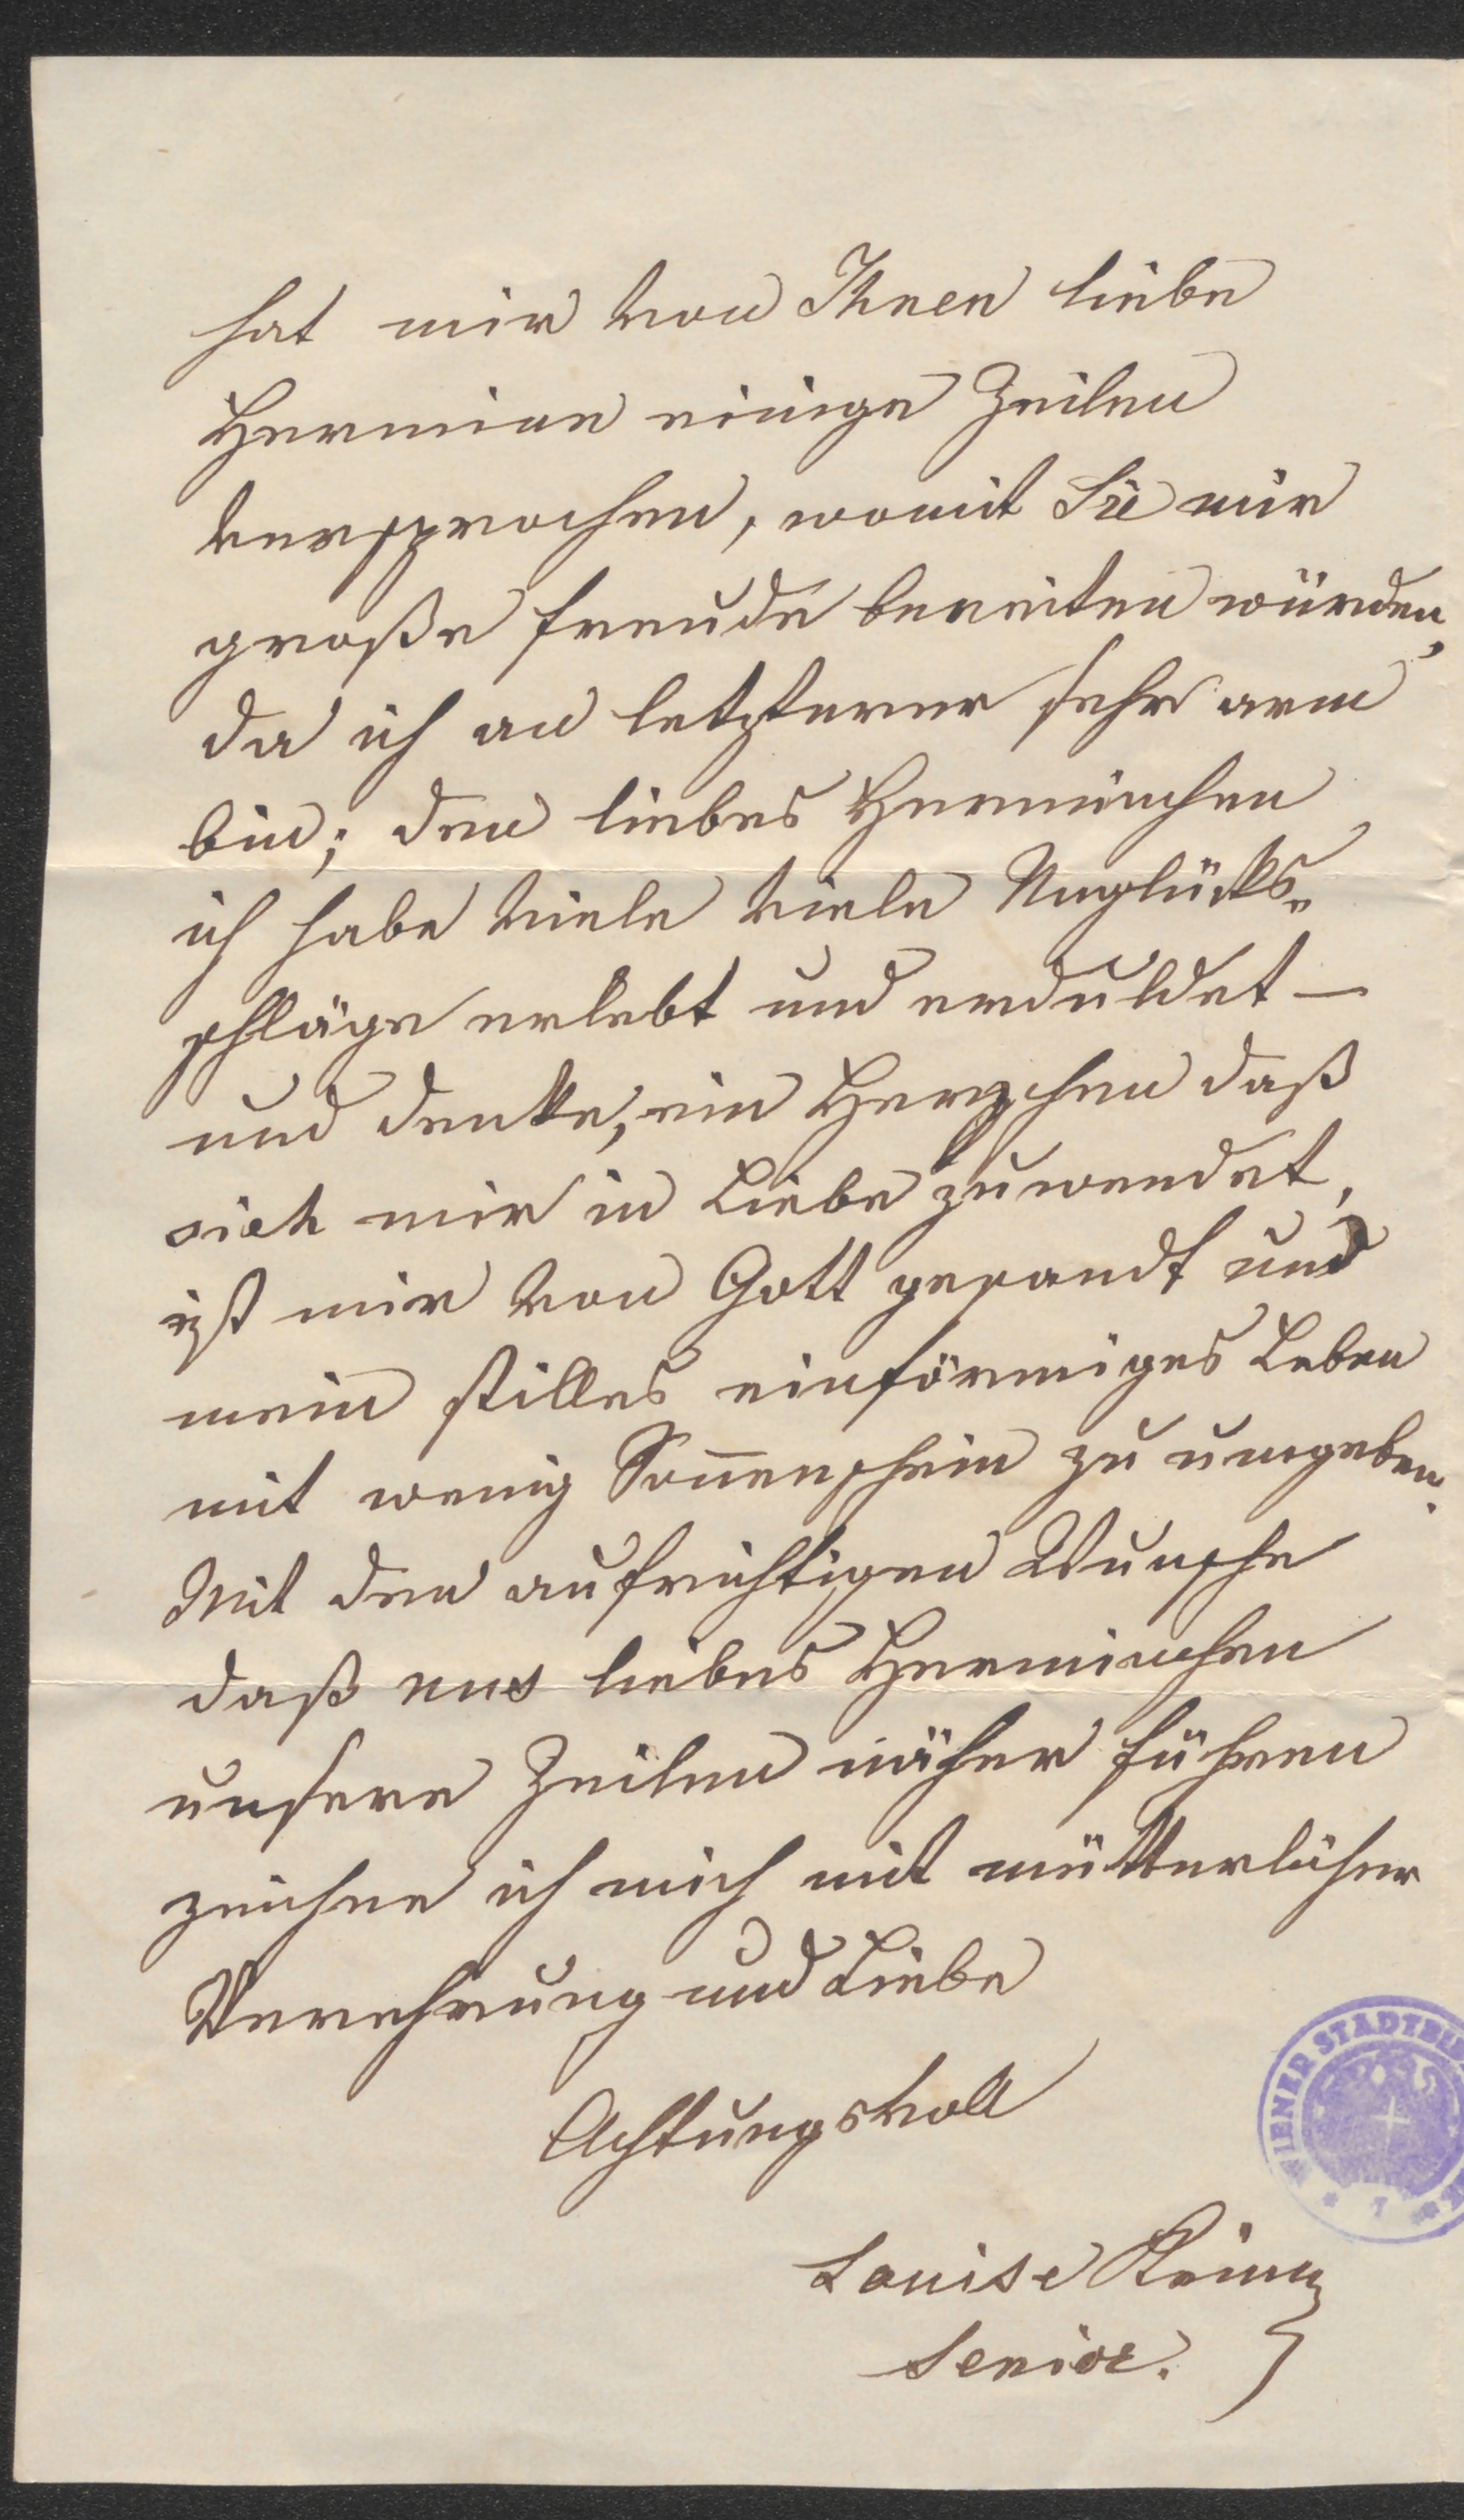 hat mir von Ihnen liebe
Hermine einige Zeilen
versprochen, womit Sie mir
große Freude bereiten würden,
da ich an letzterer sehr arm
bin; den liebes Herminchen
ich habe viele viele Unglücks-
schläge erlebt und erduldet —
und denke, ein Herzchen daß
sich mir in Liebe zuwendet,
ist mir von Gott gesandt und
mein stilles einförmiges Leben
mit wenig Soñenschein zu umgeben.
Mit den aufrichtigen Wunsche
daß uns liebes Herminchen
unsere Zeilen näher führen
zeichne ich mich mit mütterlicher
Verehrung und Liebe
Achtungsvoll
Louise
Senior.
WIENER